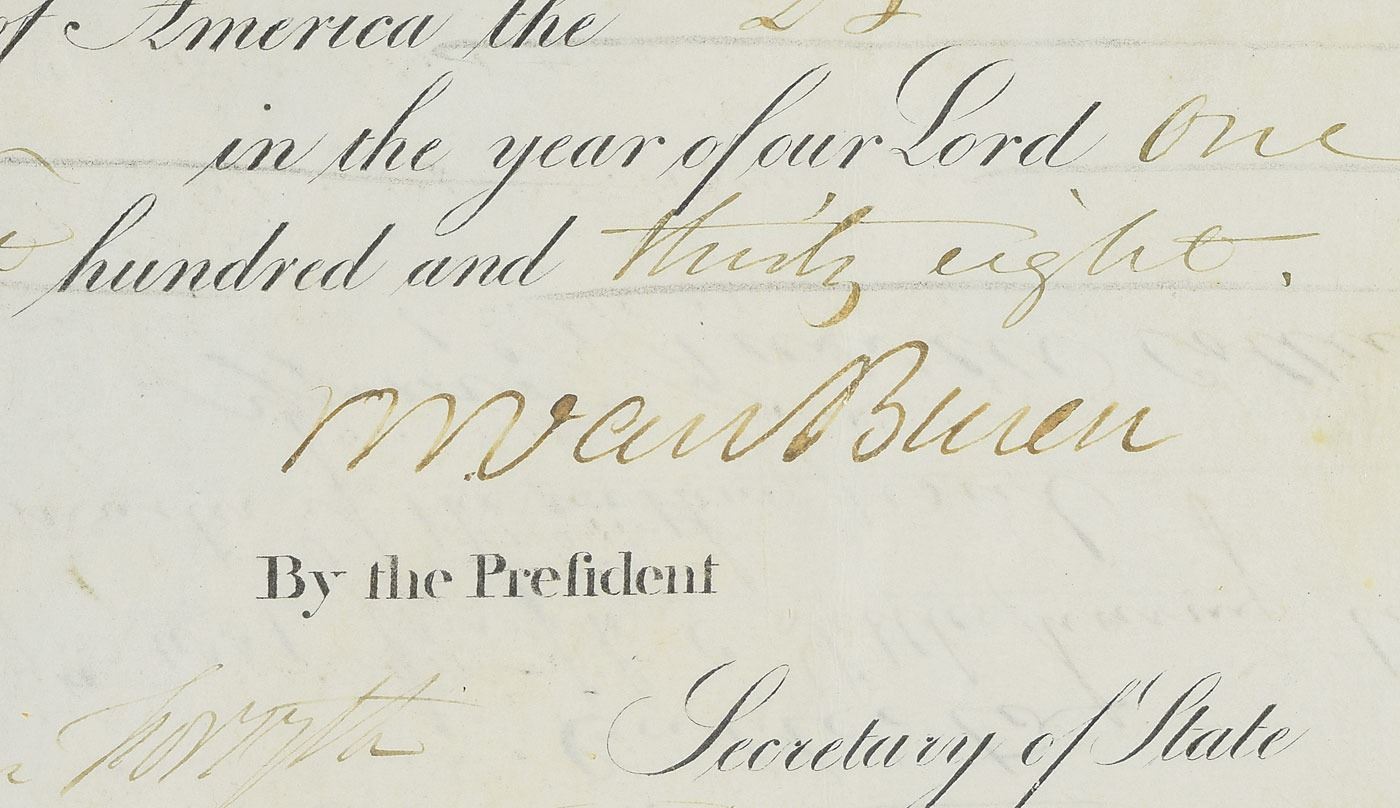 of America the
in the year of our Lord one
hundred and thirty eight.
MVan Buren
By the Preſident
Forsyth Secretary of State